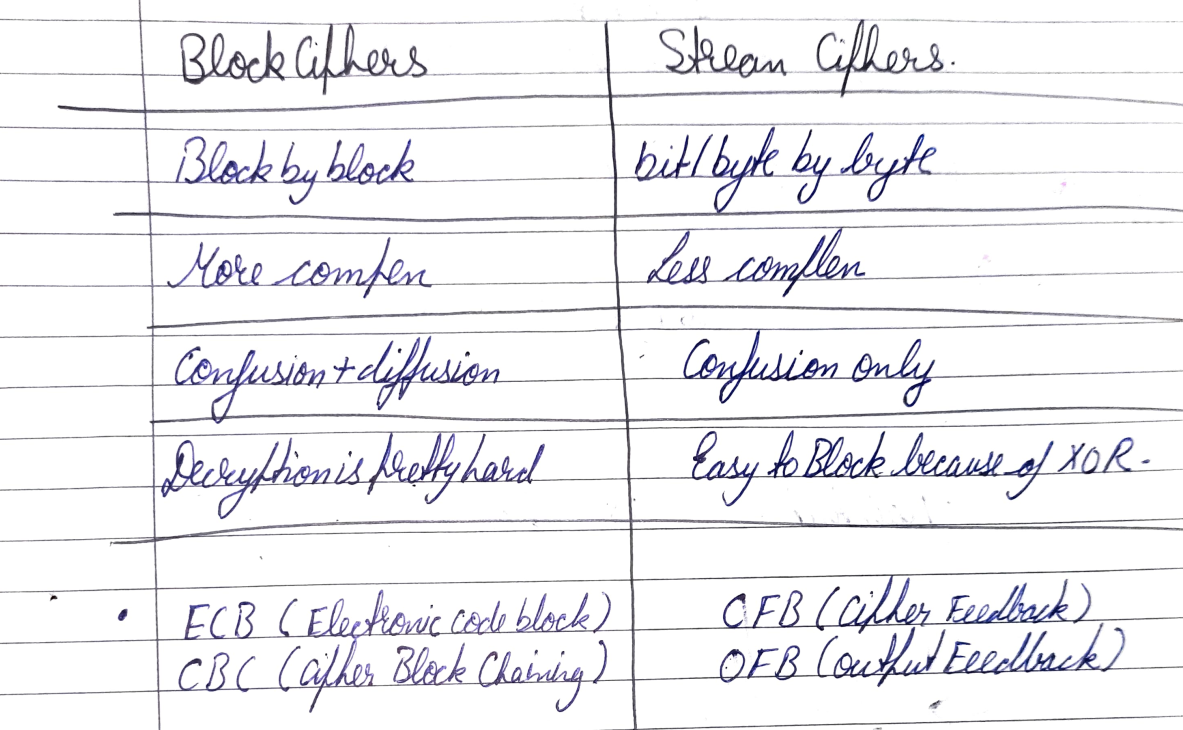 Block Ciphers Stream Ciphers.
Block by block bit/byte by byte
More compen Less complen
Confusion + diffusion Confusion only
Decryption is pretty hard Easy to Block because of XOR.
• ECB (Electronic code block) CFB (Cipher Feedback)
CBC (Cipher Block Chaining) OFB (Output Feedback)